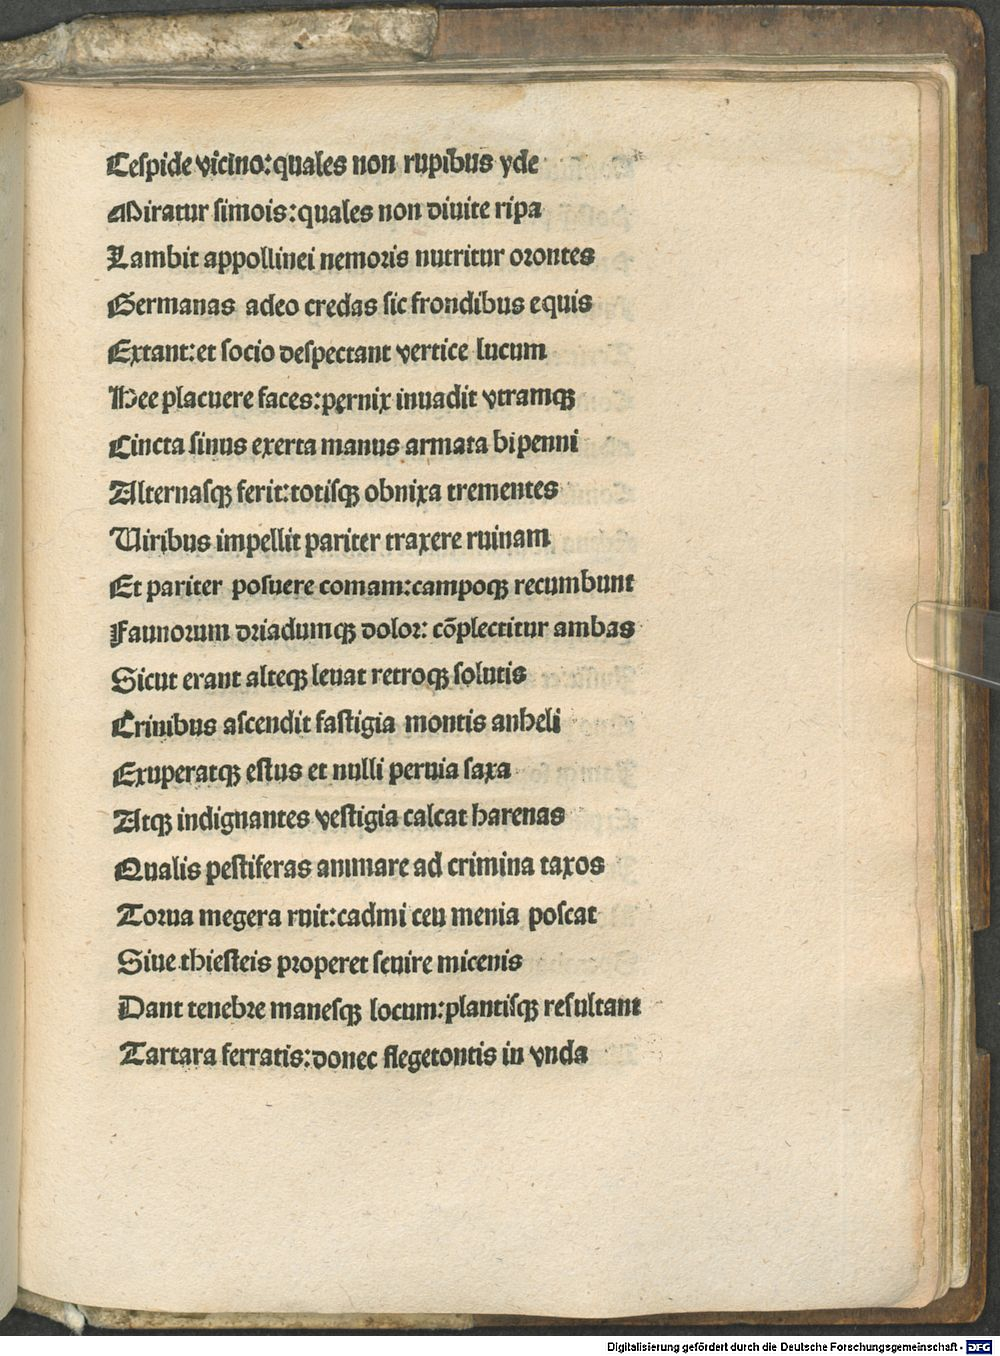 Cespide vicino:quales non rupibus yde
Miratur simois:quales non diuite ripa
Lambit appollinei nemoris nutritur orontes
Germanas adeo credas sic frondibus equis
Extant:et socio despectant vertice lucum
Hee placuere faces:pernix inuadit vtramqꝫ
Cincta sinus exerta manus armata bipenni
Alternasqꝫ ferit:totisqꝫ obnixa trementes
Uiribus impellit pariter traxere ruinam
Et pariter posuere comam:campoqꝫ recumbunt
Faunorum driadumqꝫ dolor: cōplectitur ambas
Sicut erant alteqꝫ leuat retroqꝫ solutis
Crinibus ascendit fastigia montis anheli
Exuperatqꝫ estus et nulli peruia saxa
Atqꝫ indignantes vestigia calcat harenas
Qualis pestiferas animare ad crimina taxos
Torua megera ruit:cadmi ceu menia poscat
Siue thiesteis properet seuire micenis
Dant tenebre manesqꝫ locum:plantisqꝫ resultant
Tartara ferratis:donec flegetontis in vnda
Digitalisierung gefördert durch die Deutsche Forschungsgemeinschaft - DFG